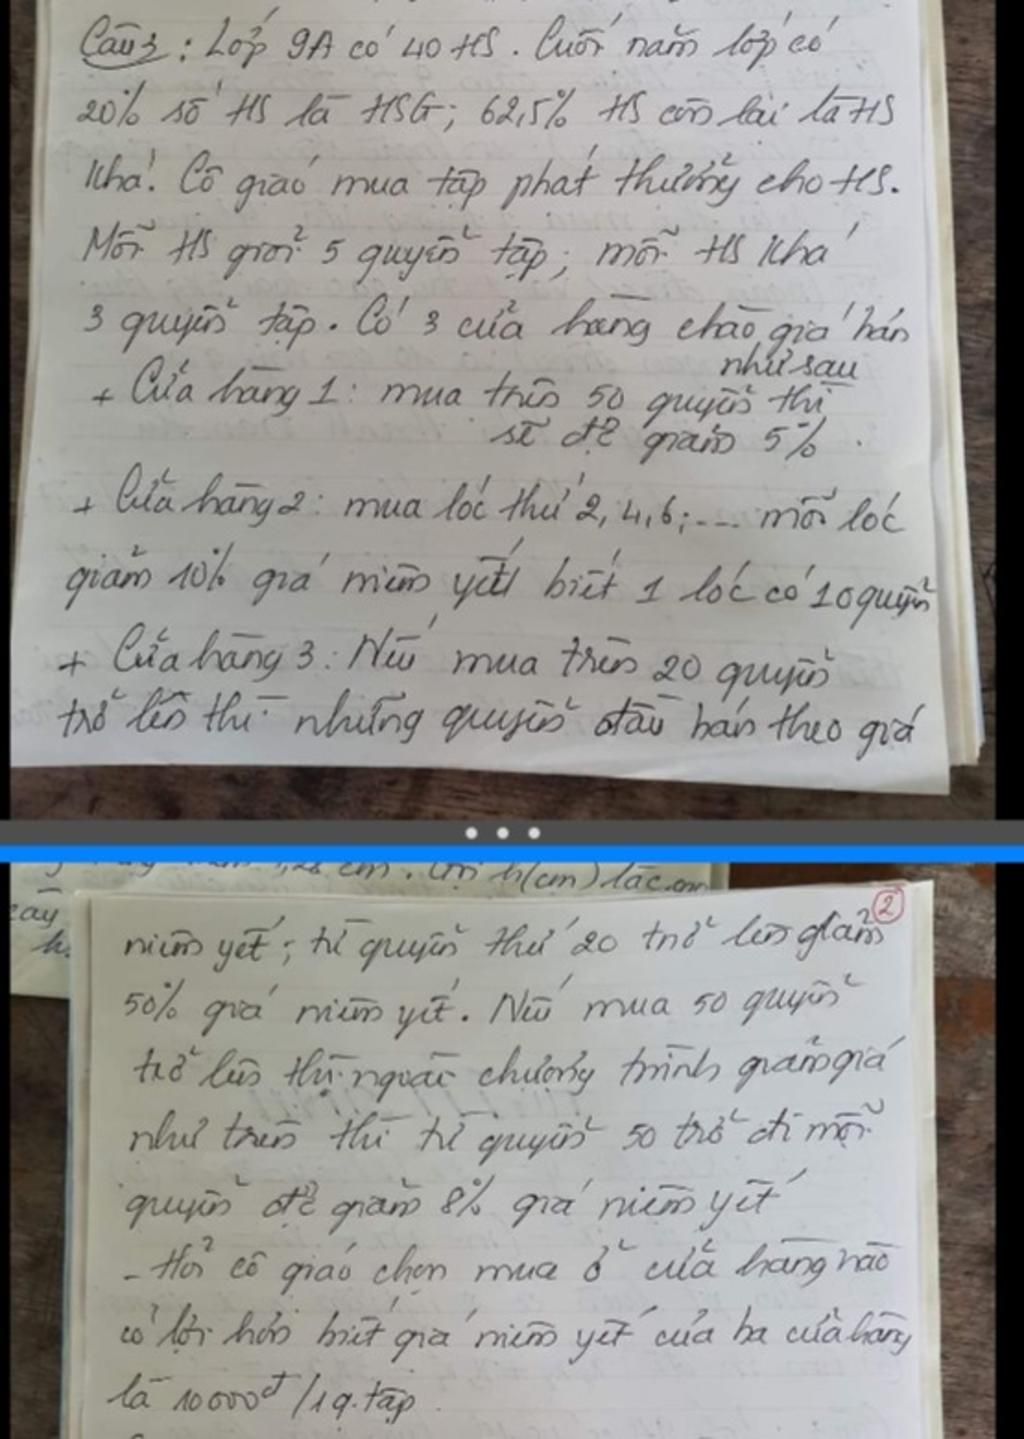 Câu 3: Lớp 9A có 40 HS. Cuối năm lớp có
20% số HS là HSG; 62,5% HS còn lại là HS
khá. Cô giáo mua tập phát thưởng cho HS.
Mỗi HS giỏi 5 quyển tập; mỗi HS khá
3 quyển tập. Có 3 cửa hàng chào giá bán
như sau
+ Cửa hàng 1: mua trên 50 quyển thì
sẽ đc giảm 5%.
+ Cửa hàng 2: mua lốc thứ 2, 4, 6; .... mỗi lốc
giảm 10% giá niêm yết biết 1 lốc có 10 quyển
+ Cửa hàng 3: Nếu mua trên 20 quyển
trở lên thì những quyển đầu bán theo giá
cm. h(cm)
niêm yết; từ quyển thứ 20 trở lên giảm
2
50% giá niêm yết. Nếu mua 50 quyển
trở lên thì ngoài chương trình giảm giá
như trên thì từ quyển 50 trở đi mỗi
quyển đc giảm 8% giá niêm yết
- Hỏi cô giáo chọn mua ở cửa hàng nào
có lợi hơn biết giá niêm yết của ba cửa hàng
là 10000đ/1q.tập.